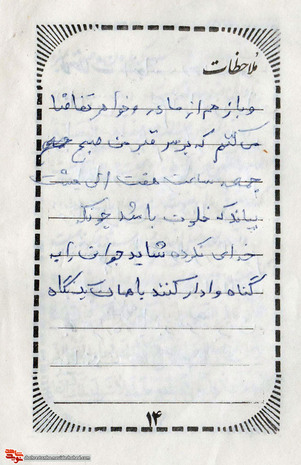 ملاحظات
و باز هم از مادر و خواهر تقاضا
می کنم که بر سر قبر من صبح
جمعه ساعت هفت الی هشت
بیایند که خلوت باشد چونکه
خدای نکرده شاید جوانی را به
گناه وادار کنند با همان یک نگاه
۱۴